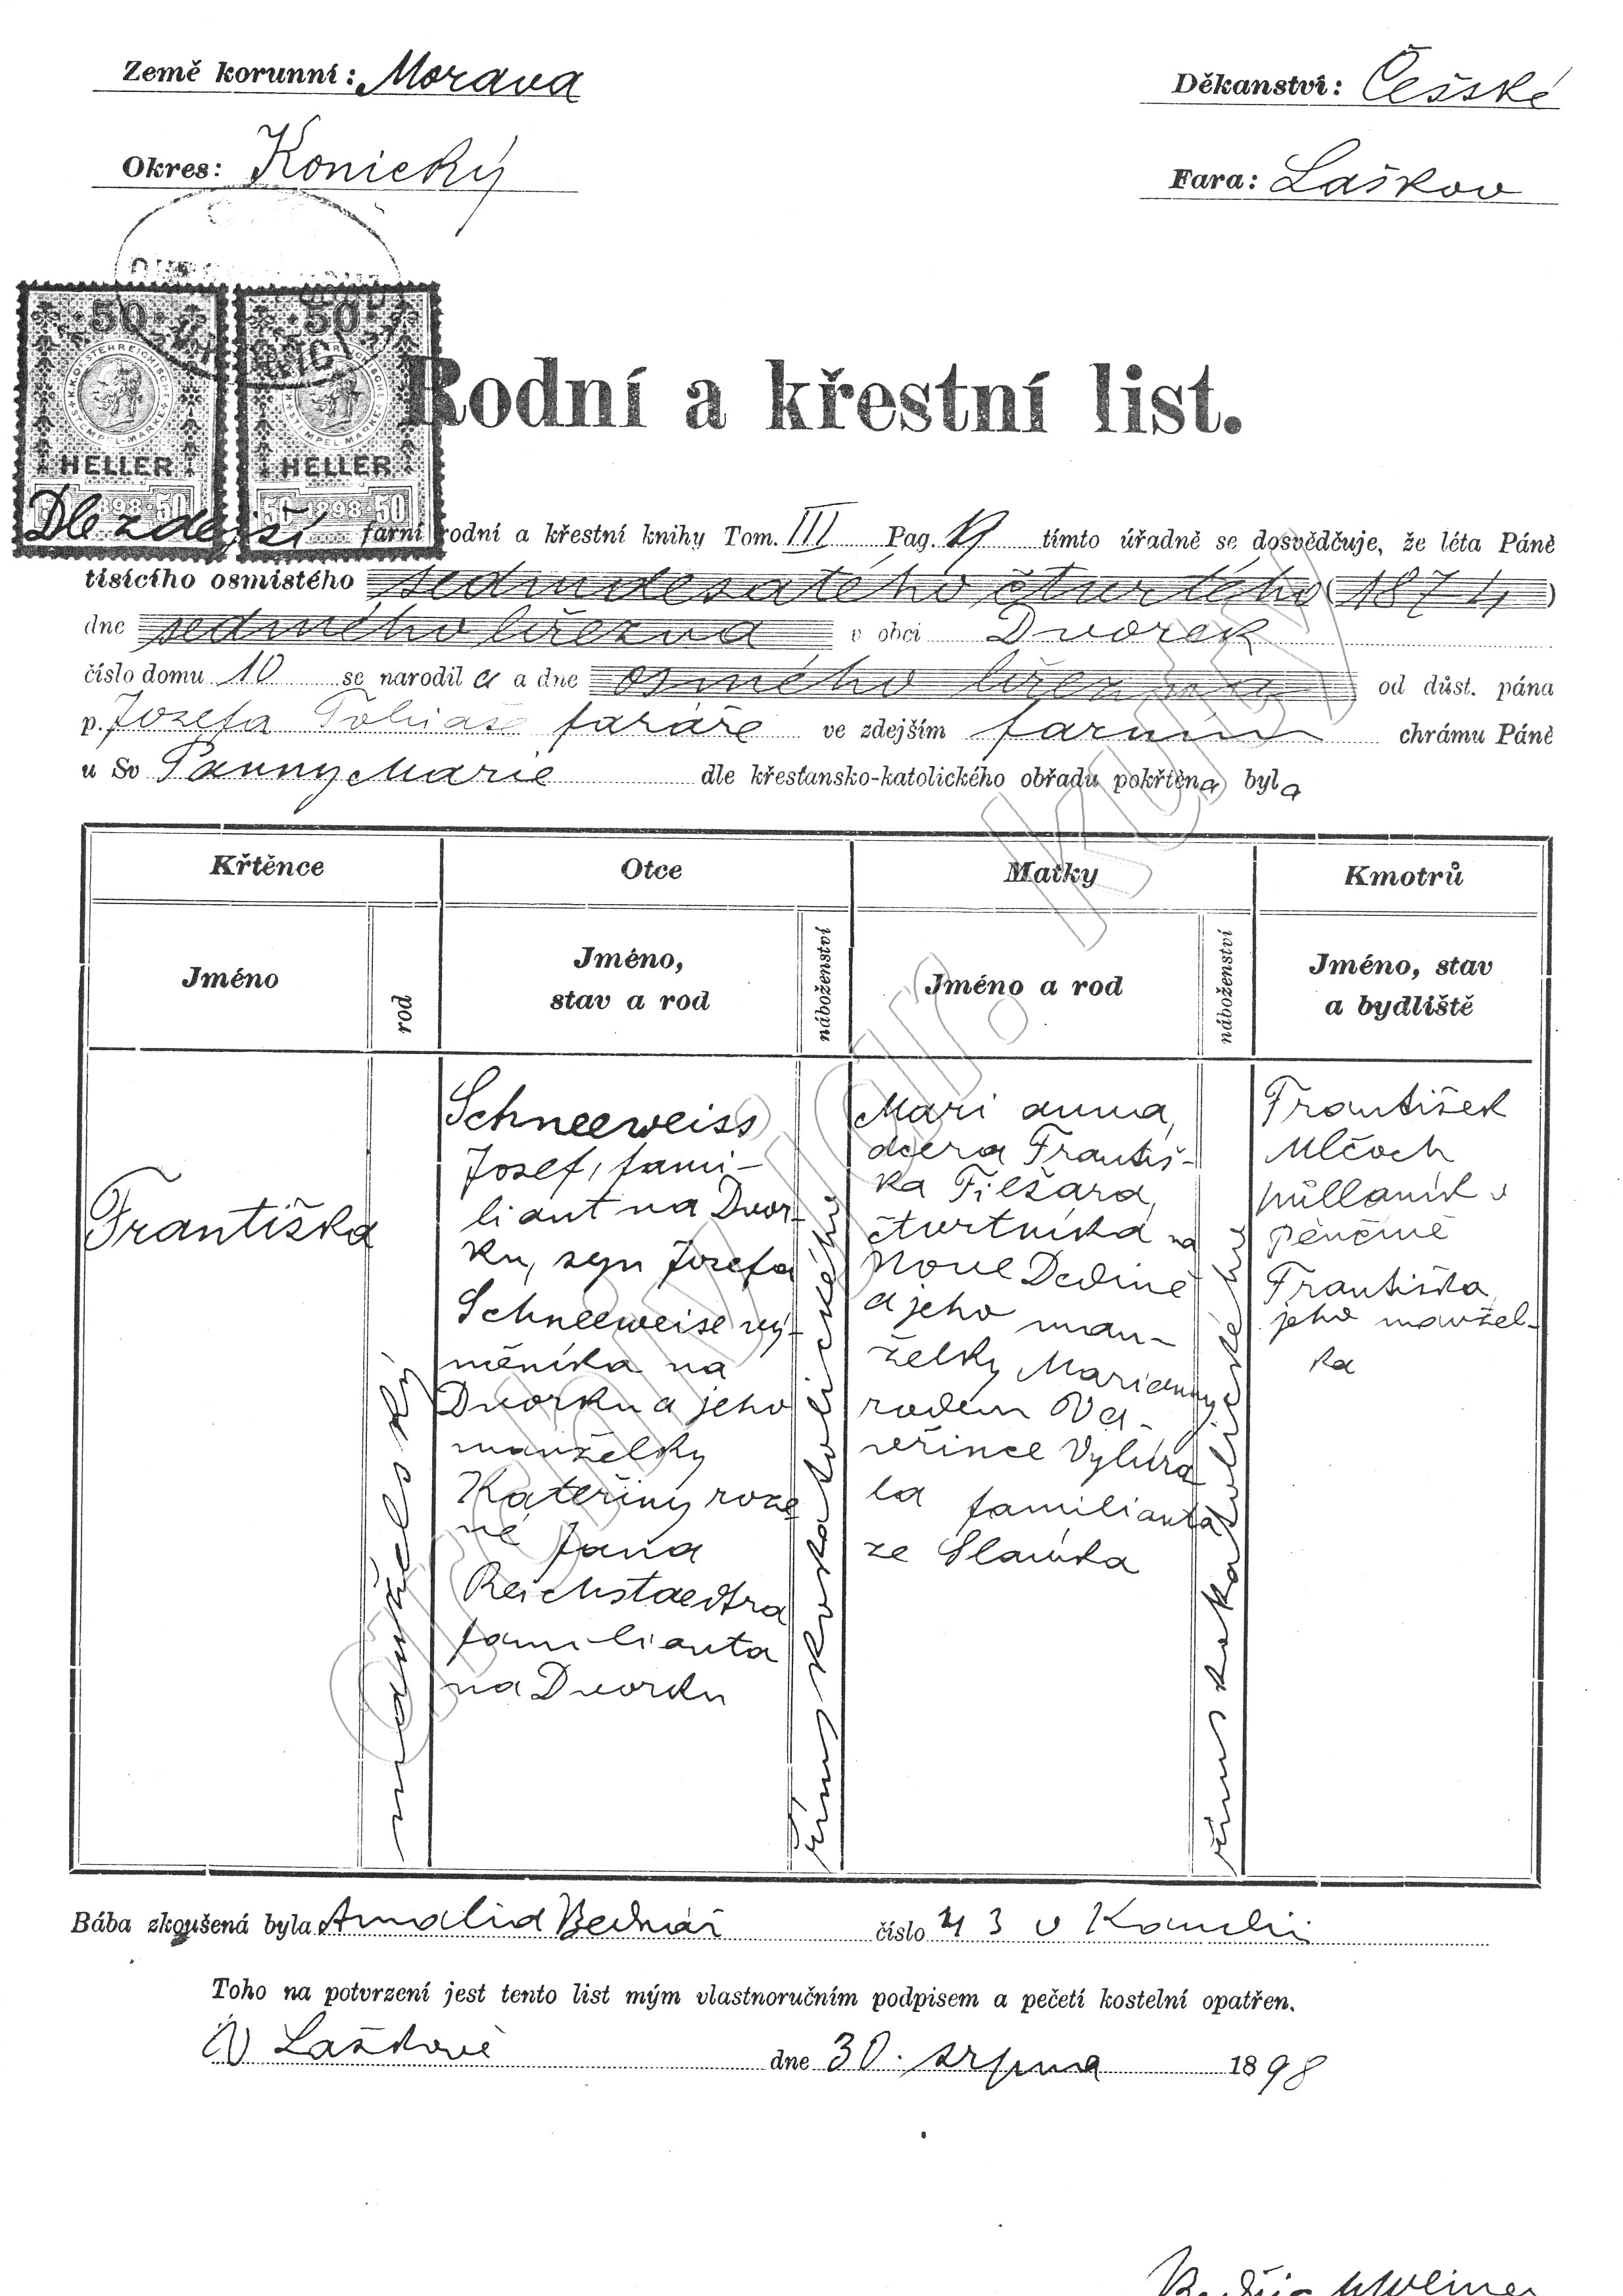 Země korunní: Morava
Děkanství: Češské
Okres: Konický
Fara: Laškov
50 50
HELLER HELLER
50 1898 50 50 1898 50
Rodní a křestní list.
Dle zdejší farní rodní a křestní knihy Tom. III Pag. tímto úřadně se dosvědčuje, že léta Páně
tisícího osmistého sedmdesatého čtvrtého (1874)
dne sedmého března v obci Dvorek
číslo domu 10 se narodil a a dne osmého března od důst. pána
p. Josefa Tobiaše faráře ve zdejším farním chrámu Páně
u Sv Panny Marie dle křesťansko-katolického obřadu pokřtěna byla
Křtěnce Otce Matky Kmotrů
Jméno rod Jméno, stav a rod náboženství Jméno a rod náboženství Jméno, stav a bydliště
Františka
manželský
Schneeweiss
Josef, fami-
liant na Dvor-
ku, syn Josefa
Schneeweise vý-
měníka na
Dvorku a jeho
manželky
Kateřiny roze-
né Jana
Reichstaedtra
familianta
na Dvorku
římskokatolického
Mari anna,
dcera Františ-
ka Filšara,
čtvrtníka na
Nové Dedině
a jeho man-
želky Marianny
rodem Va-
vřince Vylíza
la familianta
ze Slavíka
římskokatolického
František
Mlčoch
půllaník v
Pěnčině
Františka,
jeho manžel-
ka
Bába zkoušená byla Amalia Bednář číslo 43 v Kandii
Toho na potvrzení jest tento list mým vlastnoručním podpisem a pečetí kostelní opatřen.
V Laškově dne 30. srpna 1898
archivigr. kuby